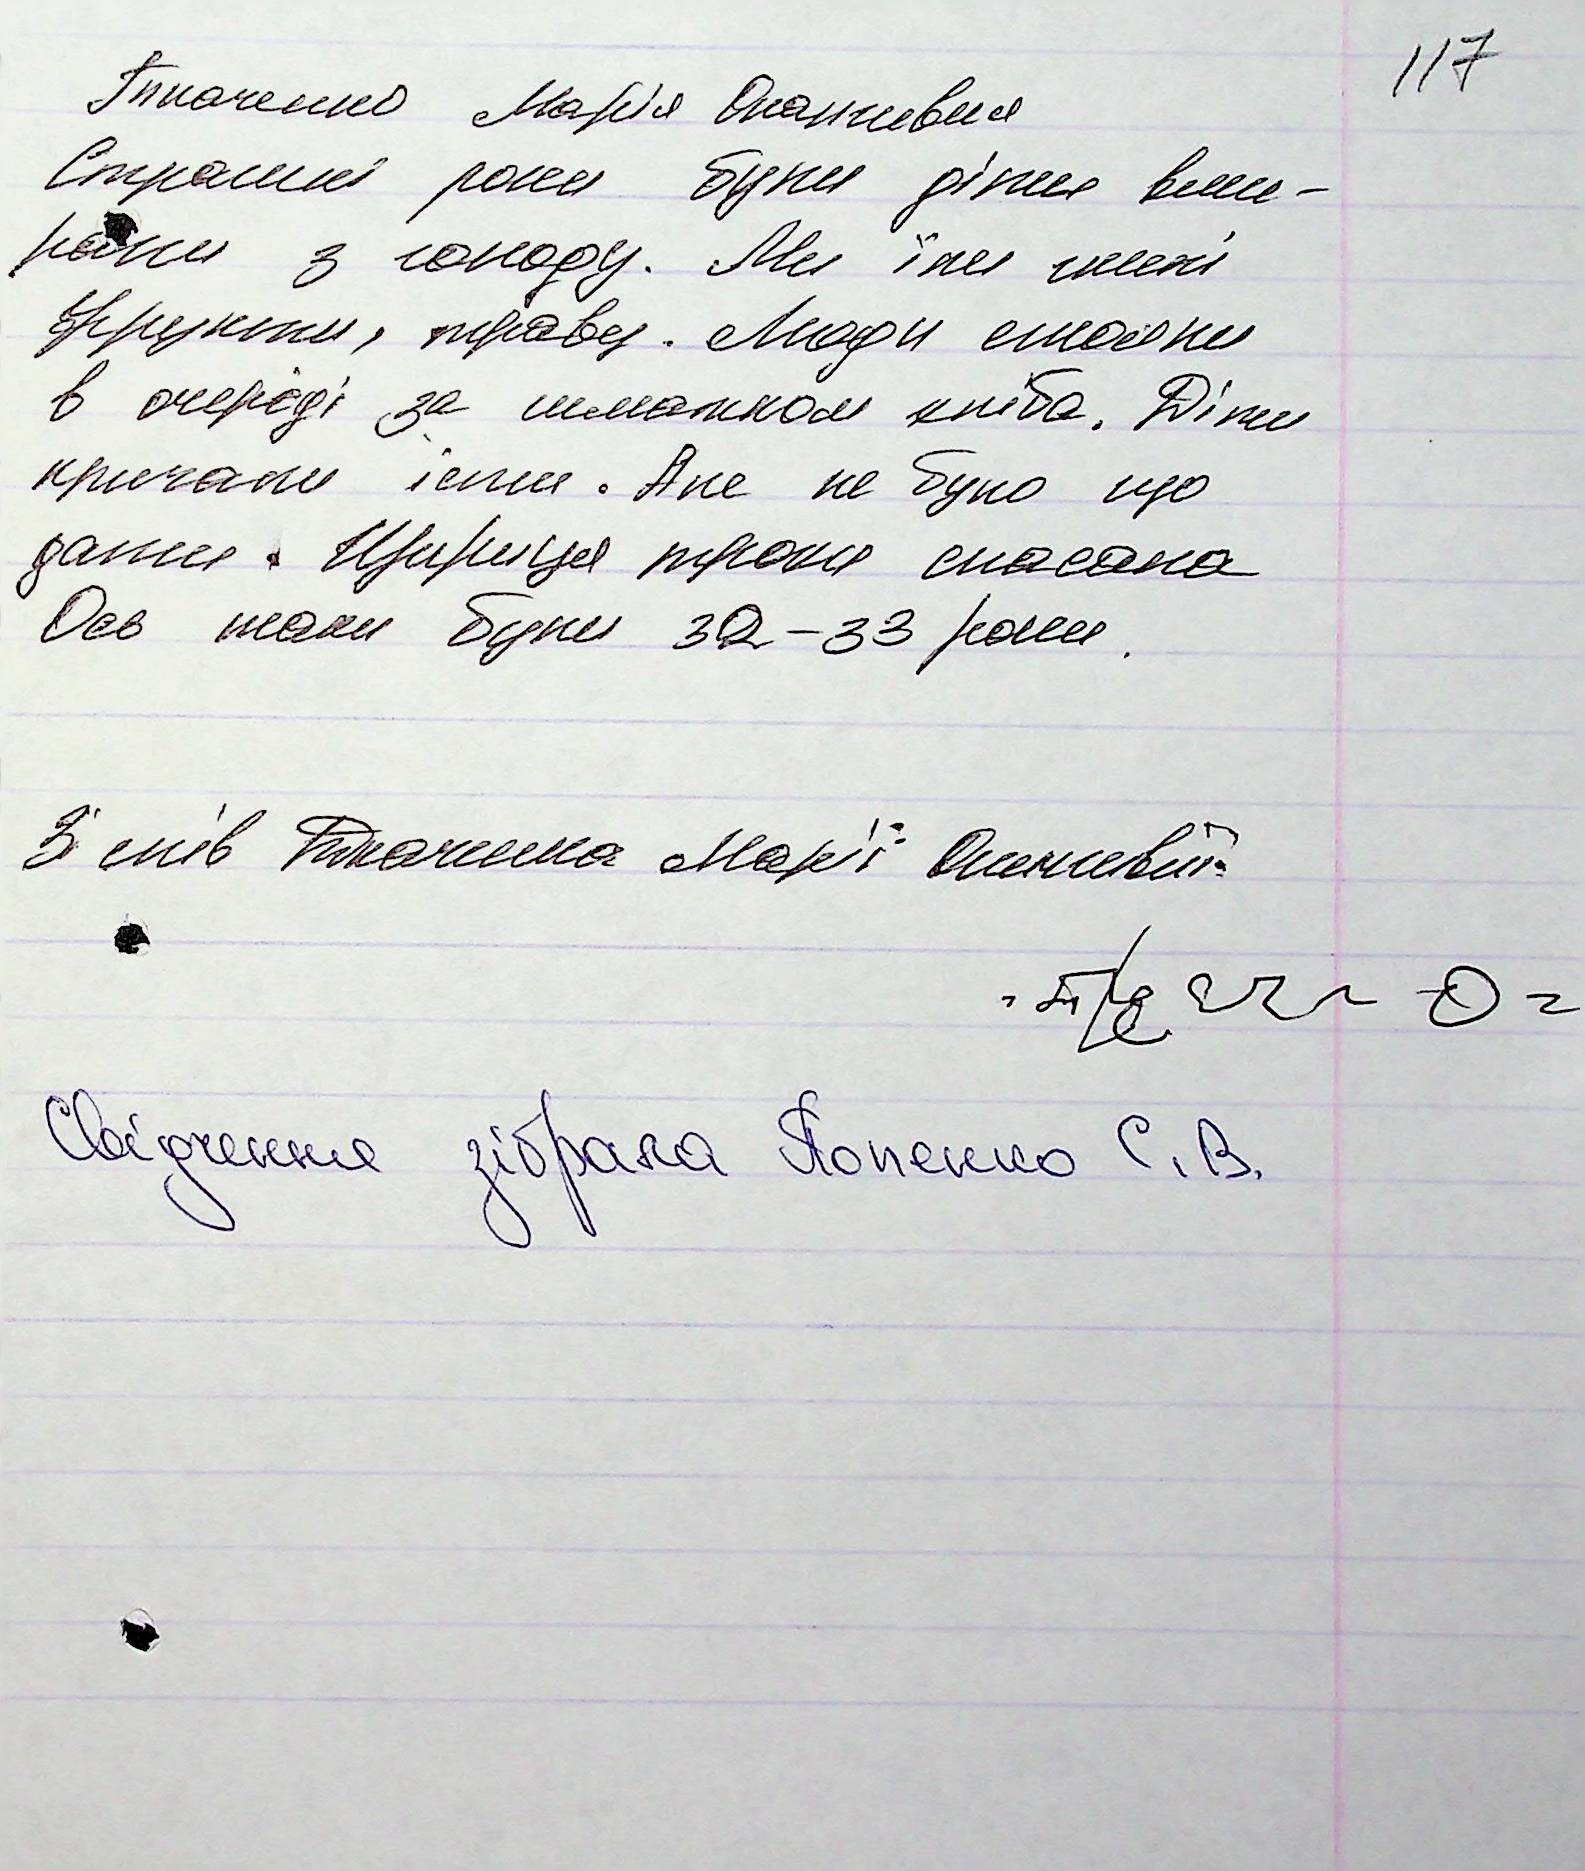 117
Ткаченко Марія
Страшні роки були діти вми-
рали з голоду. Ми їли гнилі
фрукти, траву. Люди стояли
в очереді за шматком хліба. Діти
кричали їсти. Але не було що
дати. Щириця трохи спасала
Ось таки були 32-33 роки.
Зі слів Ткаченка Марії
Свідчення зібрала Попенко С.В.